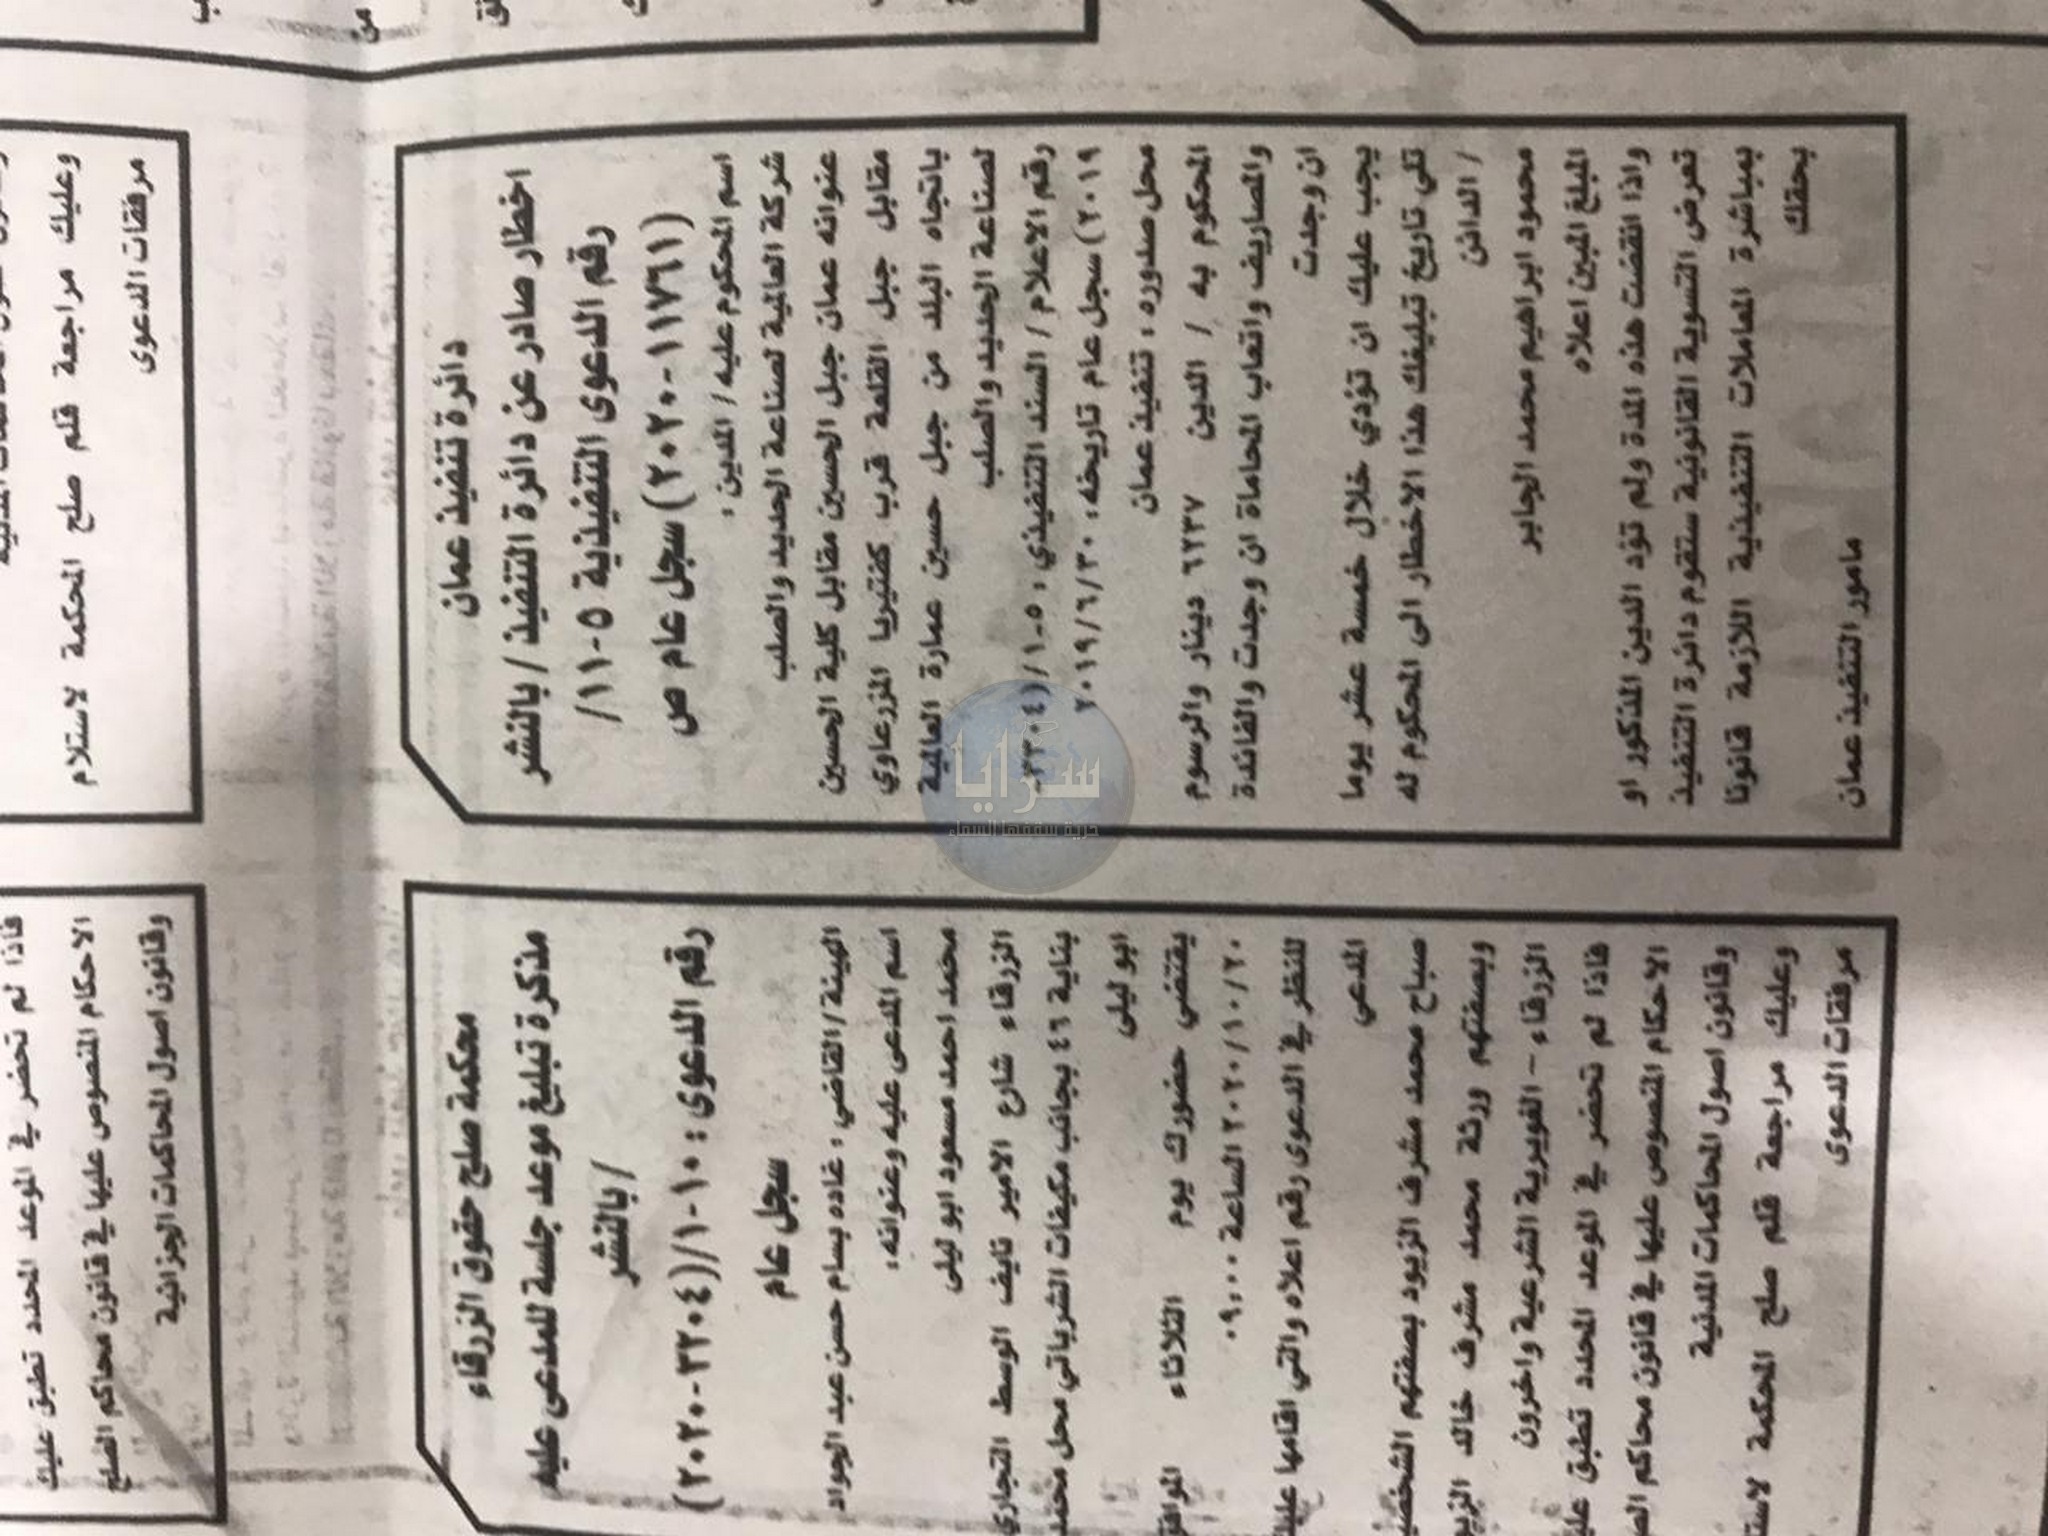 دائرة تنفيذ عمان
اخطار صادر عن دائرة التنفيذ / بالنشر
رقم الدعوى التنفيذية ٥-١١/
(١١٧٦١-٢٠٢٠) سجل عام ص
اسم المحكوم عليه / المدين :
شركة العالمية لصناعة الحديد والصلب
عنوانه عمان جبل الحسين مقابل كلية الحسين
مقابل جبل القلعة قرب كفتيريا المزرعاوي
باتجاه البلد من جبل حسين عمارة العالمية
لصناعة الحديد والصلب
رقم الاعلام / السند التنفيذي : ٥-١/(٣٣٠٤-
٢٠١٩) سجل عام تاريخه : ٢٠١٩/٦/٣٠
محل صدوره : تنفيذ عمان
المحكوم به / الدين ٦٢٣٧ دينار والرسوم
والمصاريف واتعاب المحاماة ان وجدت والفائدة
ان وجدت
يجب عليك ان تؤدي خلال خمسة عشر يوما
تلي تاريخ تبليغك هذا الاخطار الى المحكوم له
/ الدائن
محمود ابراهيم محمد الجابر
المبلغ المبين اعلاه
واذا انقضت هذه المدة ولم تؤد الدين المذكور او
تعرض التسوية القانونية ستقوم دائرة التنفيذ
بمباشرة المعاملات التنفيذية اللازمة قانونا
بحقك
مامور التنفيذ عمان
محكمة صلح حقوق الزرقاء
مذكرة تبليغ موعد جلسة للمدعى عليه
/ بالنشر
رقم الدعوى : ١٠-١/(٣٢٠٤-٢٠٢٠)
سجل عام
الهيئة/القاضي : غاده بسام حسن عبد الجواد
اسم المدعى عليه وعنوانه :
محمد احمد مسعود ابو ليلى
الزرقاء شارع الامير نايف الوسط التجاري
بناية ٤٦ بجانب مكيفات الشرباتي محل محمد
ابو ليلى
يقتضي حضورك يوم الثلاثاء الموافق
٢٠٢٠/١٠/٢٠ الساعة ٠٩:٠٠
للنظر في الدعوى رقم اعلاه والتي اقامها عليك
المدعي
صباح محمد مشرف الزيود بصفتهم الشخصية
وبصفتهم ورثة محمد مشرف خالد الزيود
الزرقاء - الغويرية الشرعية واخرون
فاذا لم تحضر في الموعد المحدد تطبق عليك
الاحكام المنصوص عليها في قانون محاكم الصلح
وقانون اصول المحاكمات المدنية
وعليك مراجعة قلم صلح المحكمة لاستلام
مرفقات الدعوى
وعليك مراجعة قلم صلح المحكمة لاستلام
مرفقات الدعوى
فاذا لم تحضر في الموعد المحدد تطبق عليك
الاحكام المنصوص عليها في قانون محاكم الصلح
وقانون اصول المحاكمات الجزائية
سرايا
حرية سقفها السماء